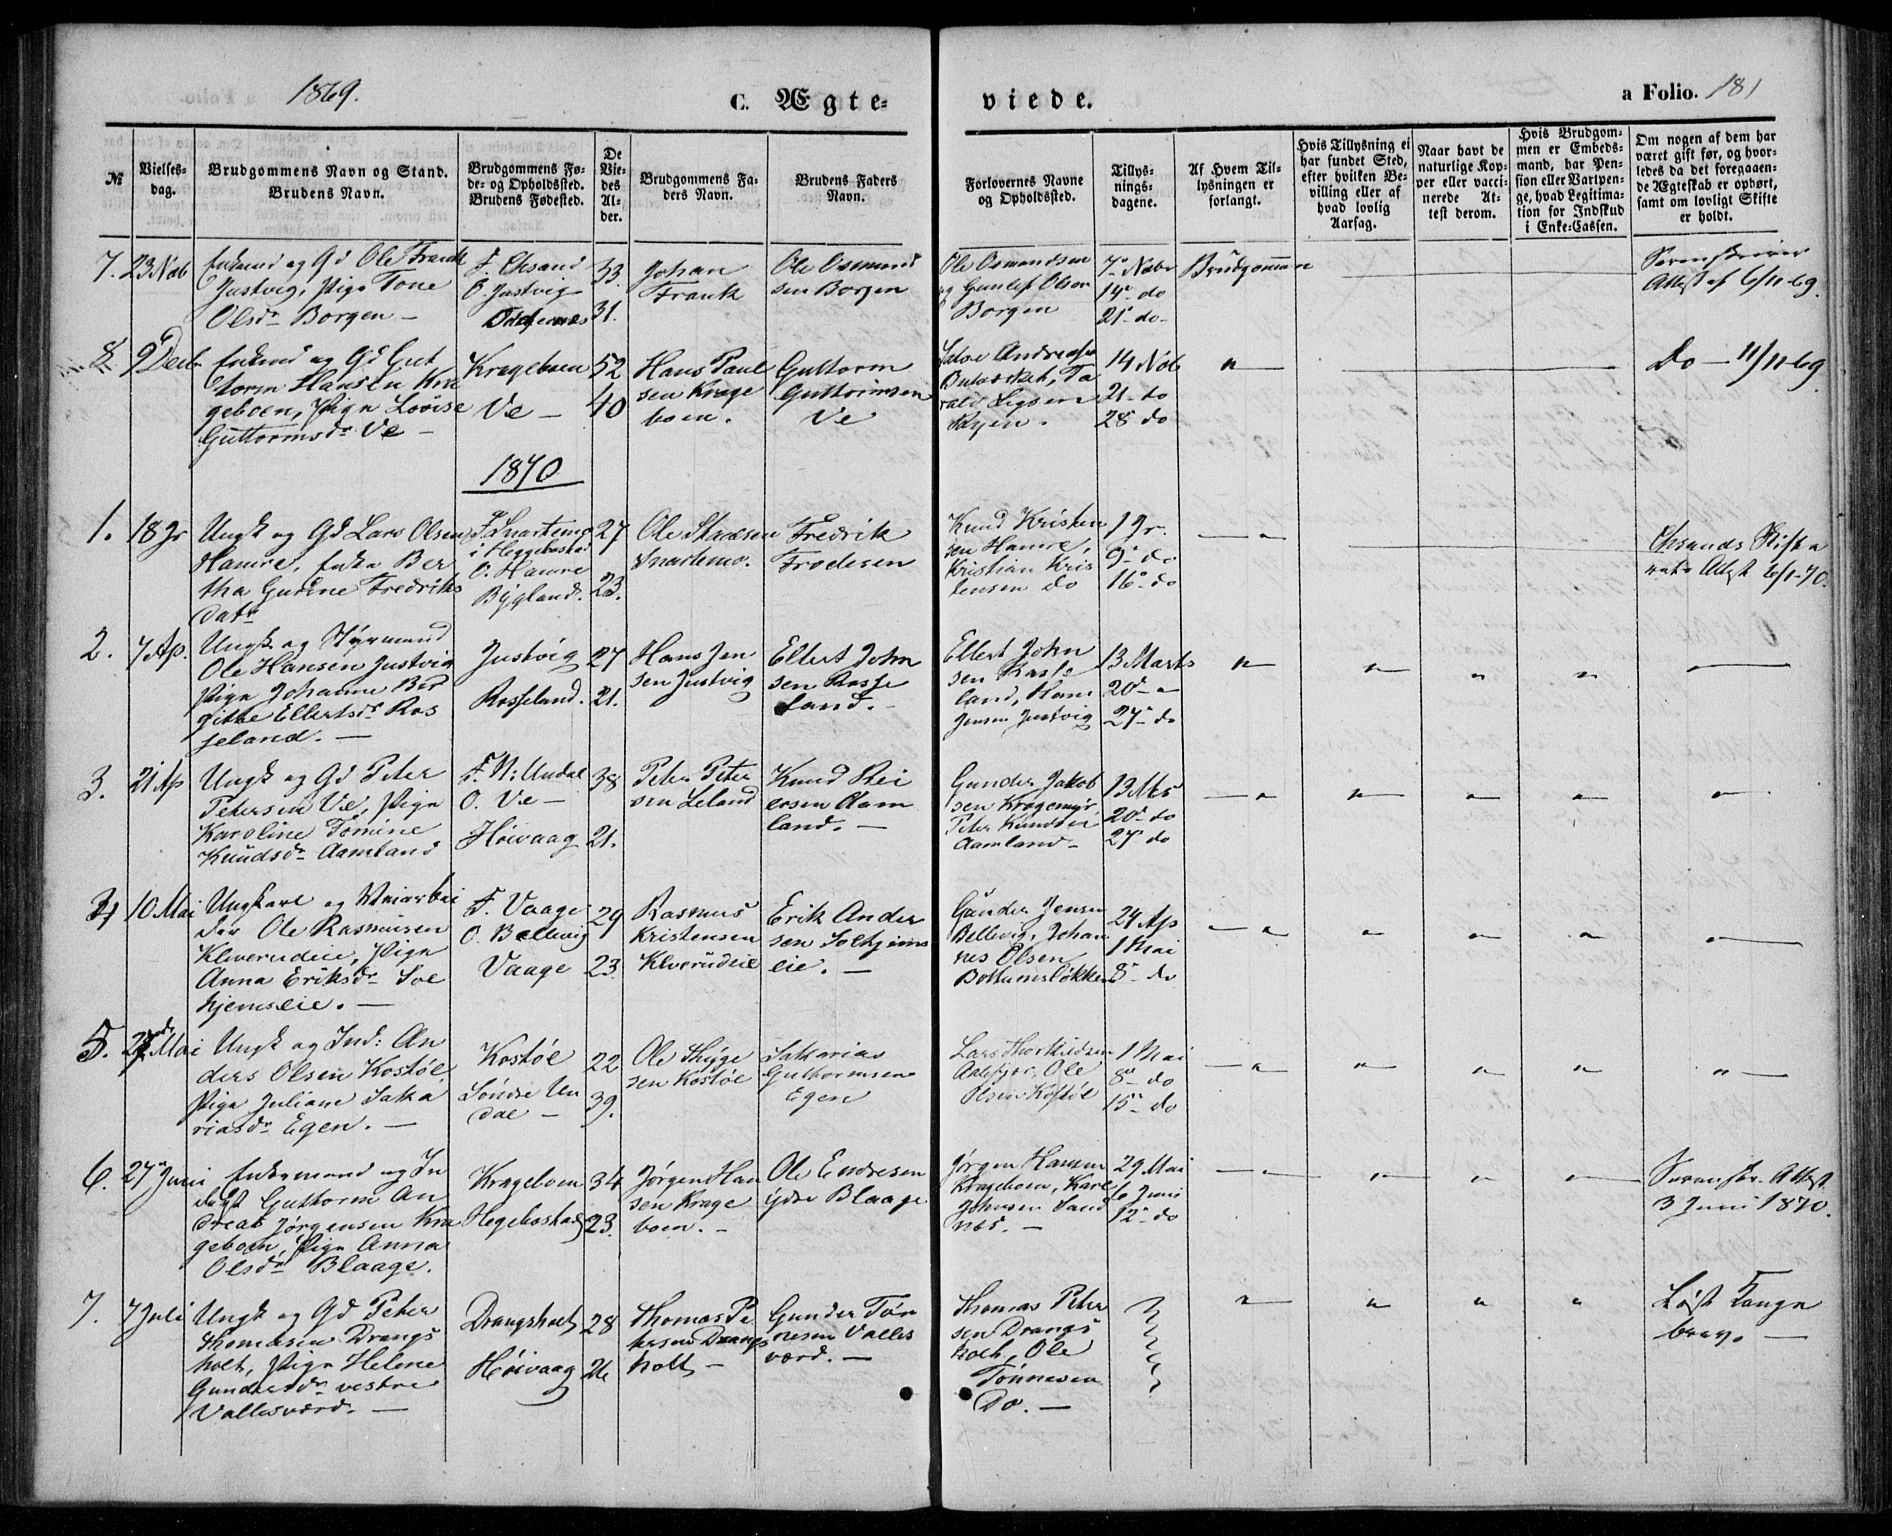 1869.
C. Ægte-
viede.
a Folio. 181
№
Vielses-
dag.
Brudgommens Navn og Stand.
Brudens Navn.
Brudgommens Fø-
de- og Opholdssted.
Brudens Fødested.
De
Vie-
des
Al-
der.
Brudgommens Fa-
ders Navn.
Brudens Faders
Navn.
Forlovernes Navne
og Opholdssted.
Tillys-
nings-
dagene.
Af Hvem Til-
lysningen er
forlangt.
Hvis Tillysning ei
har fundet Sted,
efter hvilken Be-
villing eller af
hvad lovlig
Aarsag.
Naar havt de
naturlige Kop-
per eller vacci-
nerede. At-
test derom.
Hvis Brudgom-
men er Embeds-
mand, har Pen-
sion eller Vartpen-
ge, hvad Legitima-
tion for Indskud
i Enke-Cassen.
Om nogen af dem har
været gift før, og hvor-
ledes da det foregaaen-
de Ægteskab er ophørt,
samt om lovligt Skifte
er holdt.
7. 23 Nov
Enkmd og Gd Ole Frank
Justvig, Pige Tone
Olsdr Borgen —
F. Chsand
O. Justvig
Oddernes
33.
31.
Johan
Frank
Ole Osmund
sen Borgen
Ole Osmundsen
og Gunlef Olsen
Borgen
7de Novbr
14de do
21de do
Brudgommen
Sorenskriver
Attest af 6/11 69.
8. 9 Decb
Enkmd og Gd Gut
torm Hansen Kra
geboen, Pige Lovise
Guttormsdr Ve —
Krageboen
Ve —
52
40
Hans Paul
sen Krage
boen.
Guttorm
Guttormsen
Ve
14 Nov
21 do
28 do
"
Do — 11/11 69
1870
1. 18 Jr
Ungk og Gd Lars Olsen
Hamre, Enke Ber
tha Gurine Fredriks
datr
F. Snartemo
i Heggebostad
O. Hamre
Bygland.
27
23.
Ole
Snartemo.
Fredrik
Frodesen
Knud Kristen
sen Hamre,
Kristian Kris
tensen do
1 Jr.
9de do
16de do
— " —
Chsands Skifte
rets Attest 6/1 70.
2. 7 Ap.
Ungk og Styrmand
Ole Hansen Justvig
Pige Johanne Bir
gitte Ellertsdr Ros
seland. —
Justvig
Rosseland.
27
21.
Hans Jen
sen Justvig
Ellert John
sen Rosse
land. —
Ellert John
sen Rosse
land, Hans
Jensen Justvig
13 Marts
20de "
27de do
" " " " —
3. 21 Ap
Ungk og Gd Peter
Petersen Ve, Pige
Karoline Tomine
Knudsdr Aamland
F. N: Undal
O. Ve —
Høivaag
38
21.
Peter Peter
sen Leland
Knud Rei
ersen Aam
land. —
Gunder Jakob
sen Kragemyr
Peter Knudsen
Aamland —
13 Mts
20de do
27de do
" " " " "
4 10 Mai
Ungkarl og Veiarbei
der Ole Rasmusen
Kleverudeie, Pige
Anna Eriksdr Sol
hjemseie. —
F. Vaage
O. Bellevig
Vaage
29
23.
Rasmus
Kristensen
Kleverudeie
Erik Ander
sen Solhjems
eie. —
Gunder Jensen
Bellevig, Johan
nes Olsen
24 Ap
1 Mai
8de do
" " " " "
5. 27de Mai
Ungk og Ind: An
ders Olsen Kostøl,
Pige Juliane Saka
riasdr Egen. —
Kostøl
Søndre Un
dal —
22
39.
Ole Thyge
sen Kostøl
Sakarias
Guttormsen
Egen
Lars Thorkildsen
Aalefjær, Ole
Olsen Kostøl
1 Mai
8de do
15de do
" " " " "
6. 27de Juni
Enkemand og In
derst Guttorm An
dreas Jørgensen Kra
geboen, Pige Anna
Olsdr Blaage.
Krageboen
Hegebostad
34
23.
Jørgen Han
sen Krage
boen. —
Ole Endresen
ydre Blaage
Jørgen Hansen
Krageboen, Karl
Johnsen Sand
nes. —
29 Mai
6 Juni
12de do
" " " "
Sorenskr. Attest
3 Juni 1870.
7. 7 Juli
Ungk og Gd Peter
Thomasen Drangs
holt, Pige Helene
Gundersdr vestre
Vallesværd. —
Drangsholt
Høivaag
28
26
Thomas Pe
tersen Drangs
holt —
Gunder Tøn
nesen Valles
værd. —
Thomas Peter
sen Drangs
holt, Ole
Tønnesen
Do. —
" " " "
Løst Konge
brev. —